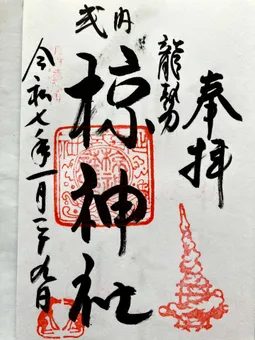 奉拝
龍勢
式内
椋神社
令和七年一月二十九日